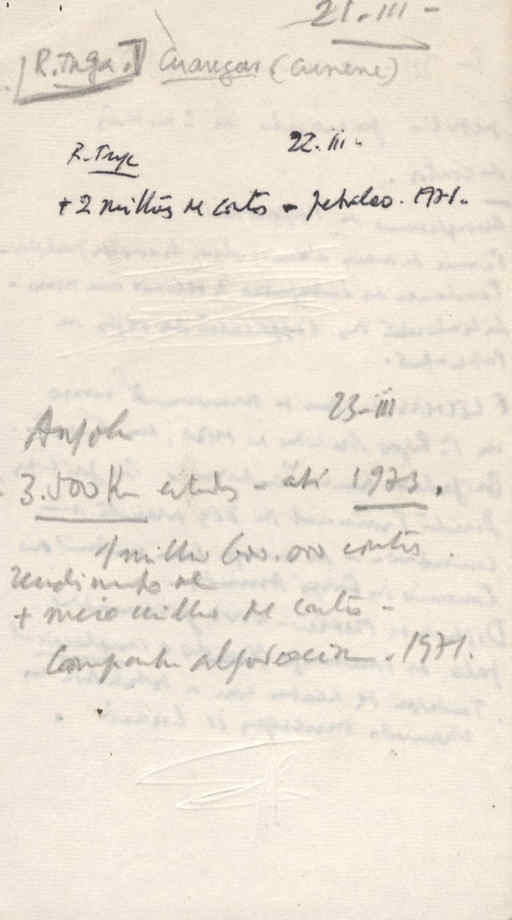 21.III -
R. Tnga. Cuaregar (Cunene)
22.III.
R. Tnga
+ 2 milhões de contos - petroleo. 1971.
23-III
Angola
3.500 Km estradas - até 1973.
1 milhão 600.000 contos.
rendimento de
+ meio milhão de contos -
Companhia algodoeira. 1971.